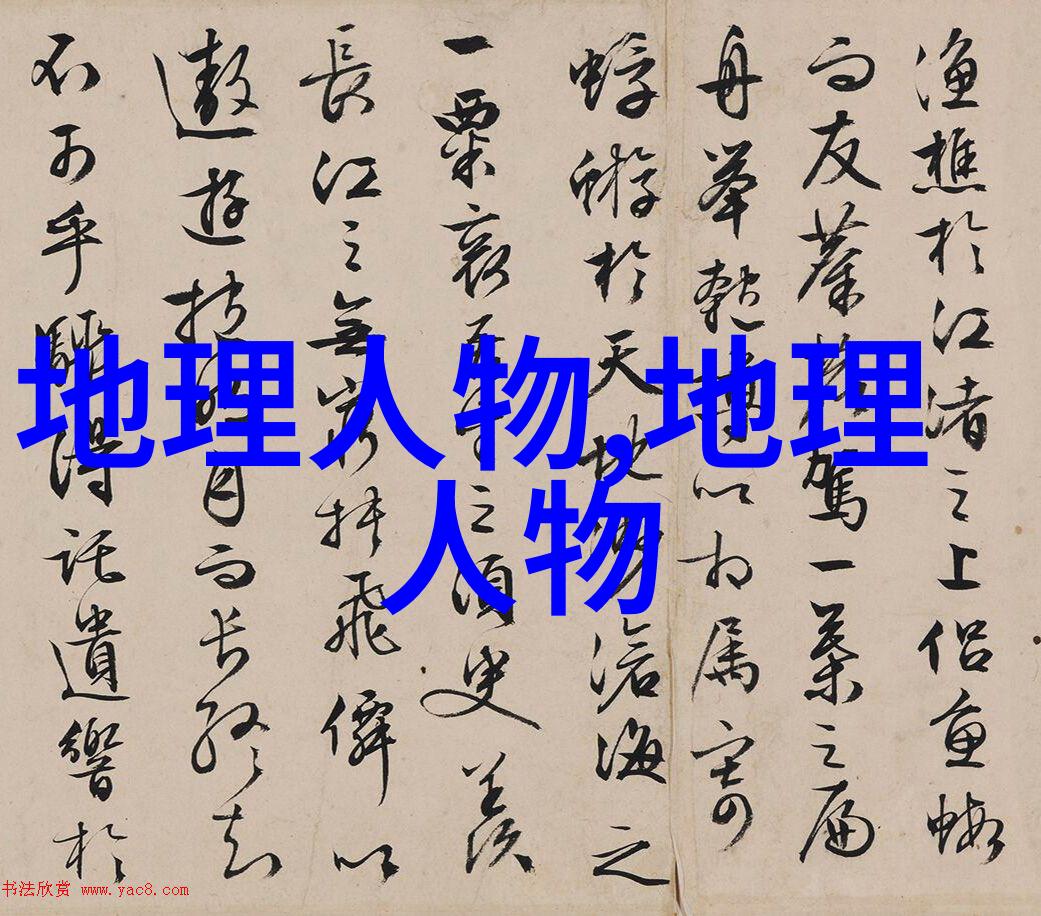 漁樵於江渚之上侣魚蝦
而友麋鹿駕一葉之扁
舟舉匏樽以相属寄
蜉蝣於天地渺滄海之
一粟哀吾生之須臾羨
長江之無窮挾飛僊以
遨遊抱明月而長終知
不可乎驟得託遺響於
地理人物,地理
人物
书法欣赏 www.yac8.com